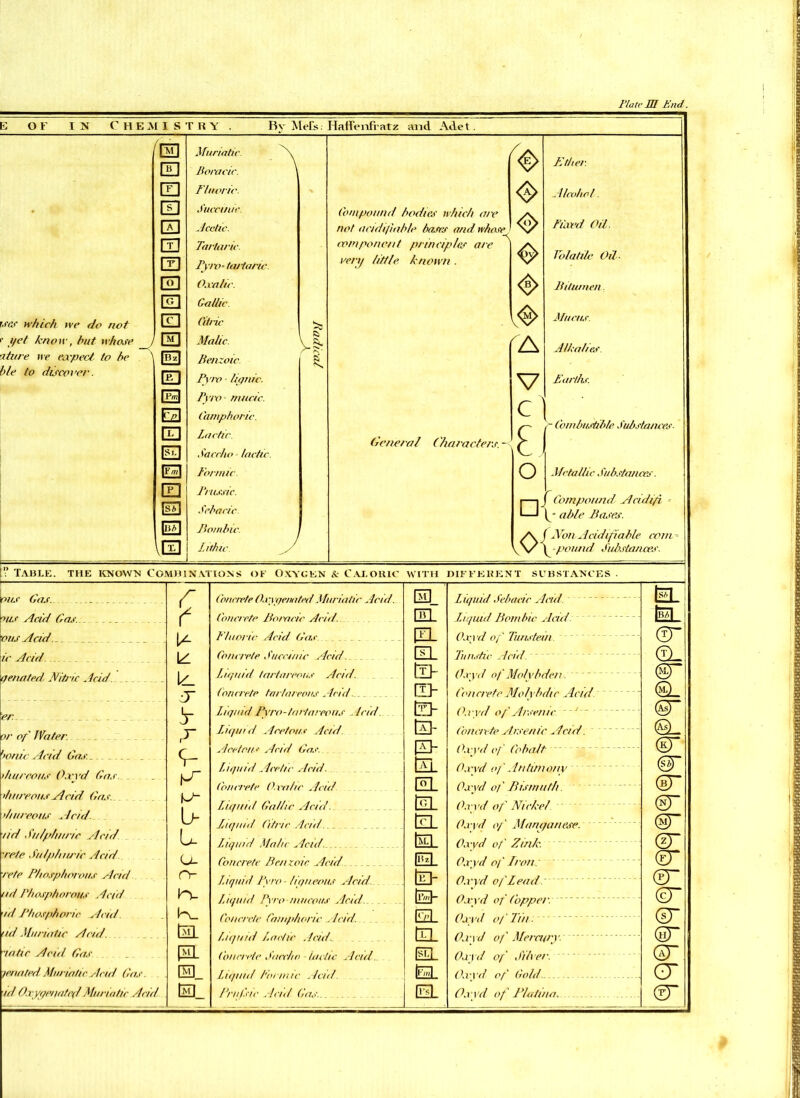 Plate III End.
E OF IN CHEMISTRY. By Mefs: Haffenfratz and Adet.
ses which we do not
yet know, but whose
ature we expect to be
ble to discover.
M Muriatic.
B Boracic.
F Fluoric.
S Succinic.
A Acetic.
T Tartaric.
T Pyro-tartaric.
O Oxalic.
G Gallic.
C Citric
M Malic.
Bz Benzoic.
P. Pyro-lignic.
Pm Pyro-mucic.
Cp Camphoric.
L Lactic.
SL Saccho-lactic.
Fm Formic.
P Prussic.
Sb Sebacic.
Bb Bombic.
L Lithic.
Radical
Compound bodies which are
not acidifiable bases and whose
component principles are
very little known.
E Ether.
A Alcohol.
O Fixed Oil.
OV Volatile Oil.
B Bitumen.
M Mucus.
General Characters.
Alkalies.
Earths.
Combustible Substances.
Metallic Substances.
Compound Acidifi-
-able Bases.
Non Acidifiable com-
-pound Substances.
TABLE. THE KNOWN COMBINATIONS OF OXYGEN & CALORIC WITH DIFFERENT SUBSTANCES.
ous Gas.
ous Acid Gas.
ous Acid.
ic Acid.
genated Nitric Acid.
er.
or of Water.
bonic Acid Gas.
phureous Oxyd Gas.
phureous Acid Gas.
phureous Acid.
uid Sulphuric Acid.
crete Sulphuric Acid.
rete Phosphorous Acid
uid Phosphorous Acid
uid Phosphoric Acid.
uid Muriatic Acid.
riatic Acid Gas
genated Muriatic Acid Gas.
uid Oxygenated Muriatic Acid
Concrete Oxygenated Muriatic Acid.
Concrete Boracic Acid.
Fluoric Acid Gas.
Concrete Succinic Acid.
Liquid tartareous Acid.
Concrete tartareous Acid.
Liquid Pyro-tartareous Acid.
Liquid Acetous Acid.
Acetous Acid Gas.
Liquid Acetic Acid.
Concrete Oxalic Acid
Liquid Gallic Acid.
Liquid Citric Acid.
Liquid Malic Acid.
Concrete Benzoic Acid
Liquid Pyro-ligneous Acid.
Liquid Pyro-mucous Acid.
Concrete Camphoric Acid.
Liquid Lactic Acid.
Concrete Saccho-lactic Acid.
Liquid Formic Acid.
Prussic Acid Gas.
Liquid Sebacic Acid.
Liquid Bombic Acid.
Oxyd of Tunstein.
Tunstic Acid.
Oxyd of Molybden.
Concrete Molybdic Acid.
Oxyd of Arsenic
Concrete Arsenic Acid.
Oxyd of Cobalt
Oxyd of Antimony
Oxyd of Bismuth.
Oxyd of Nickel.
Oxyd of Manganese.
Oxyd of Zink.
Oxyd of Iron.
Oxyd of Lead.
Oxyd of Copper.
Oxyd of Tin.
Oxyd of Mercury.
Oxyd of Silver.
Oxyd of Gold.
Oxyd of Platina.